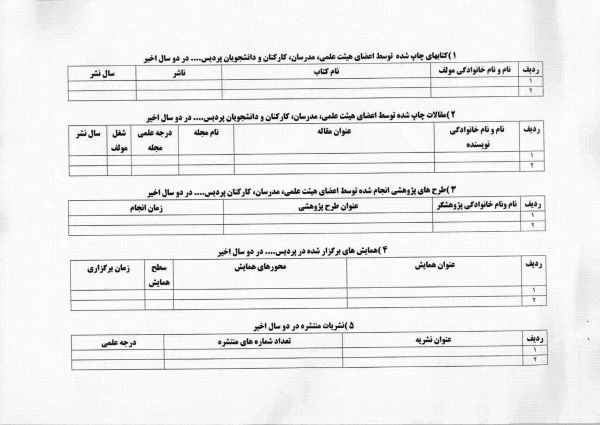 ۱)کتابهای چاپ شده توسط اعضای هیئت علمی، مدرسان، کارکنان و دانشجویان پردیس.... در دو سال اخیر
ردیف نام و نام خانوادگی مولف نام کتاب ناشر سال نشر
۱
۲
۲)مقالات چاپ شده توسط اعضای هیئت علمی، مدرسان، کارکنان و دانشجویان پردیس.... در دو سال اخیر
ردیف نام و نام خانوادگی نویسنده عنوان مقاله نام مجله درجه علمی مجله شغل مولف سال نشر
۱
۲
۳)طرح های پژوهشی انجام شده توسط اعضای هیئت علمی، مدرسان، کارکنان پردیس.... در دو سال اخیر
ردیف نام ونام خانوادگی پژوهشگر عنوان طرح پژوهشی زمان انجام
۱
۲
۴)همایش های برگزار شده در پردیس.... در دو سال اخیر
ردیف عنوان همایش محورهای همایش سطح همایش زمان برگزاری
۱
۲
۵)نشریات منتشره در دو سال اخیر
ردیف عنوان نشریه تعداد شماره های منتشره درجه علمی
۱
۲